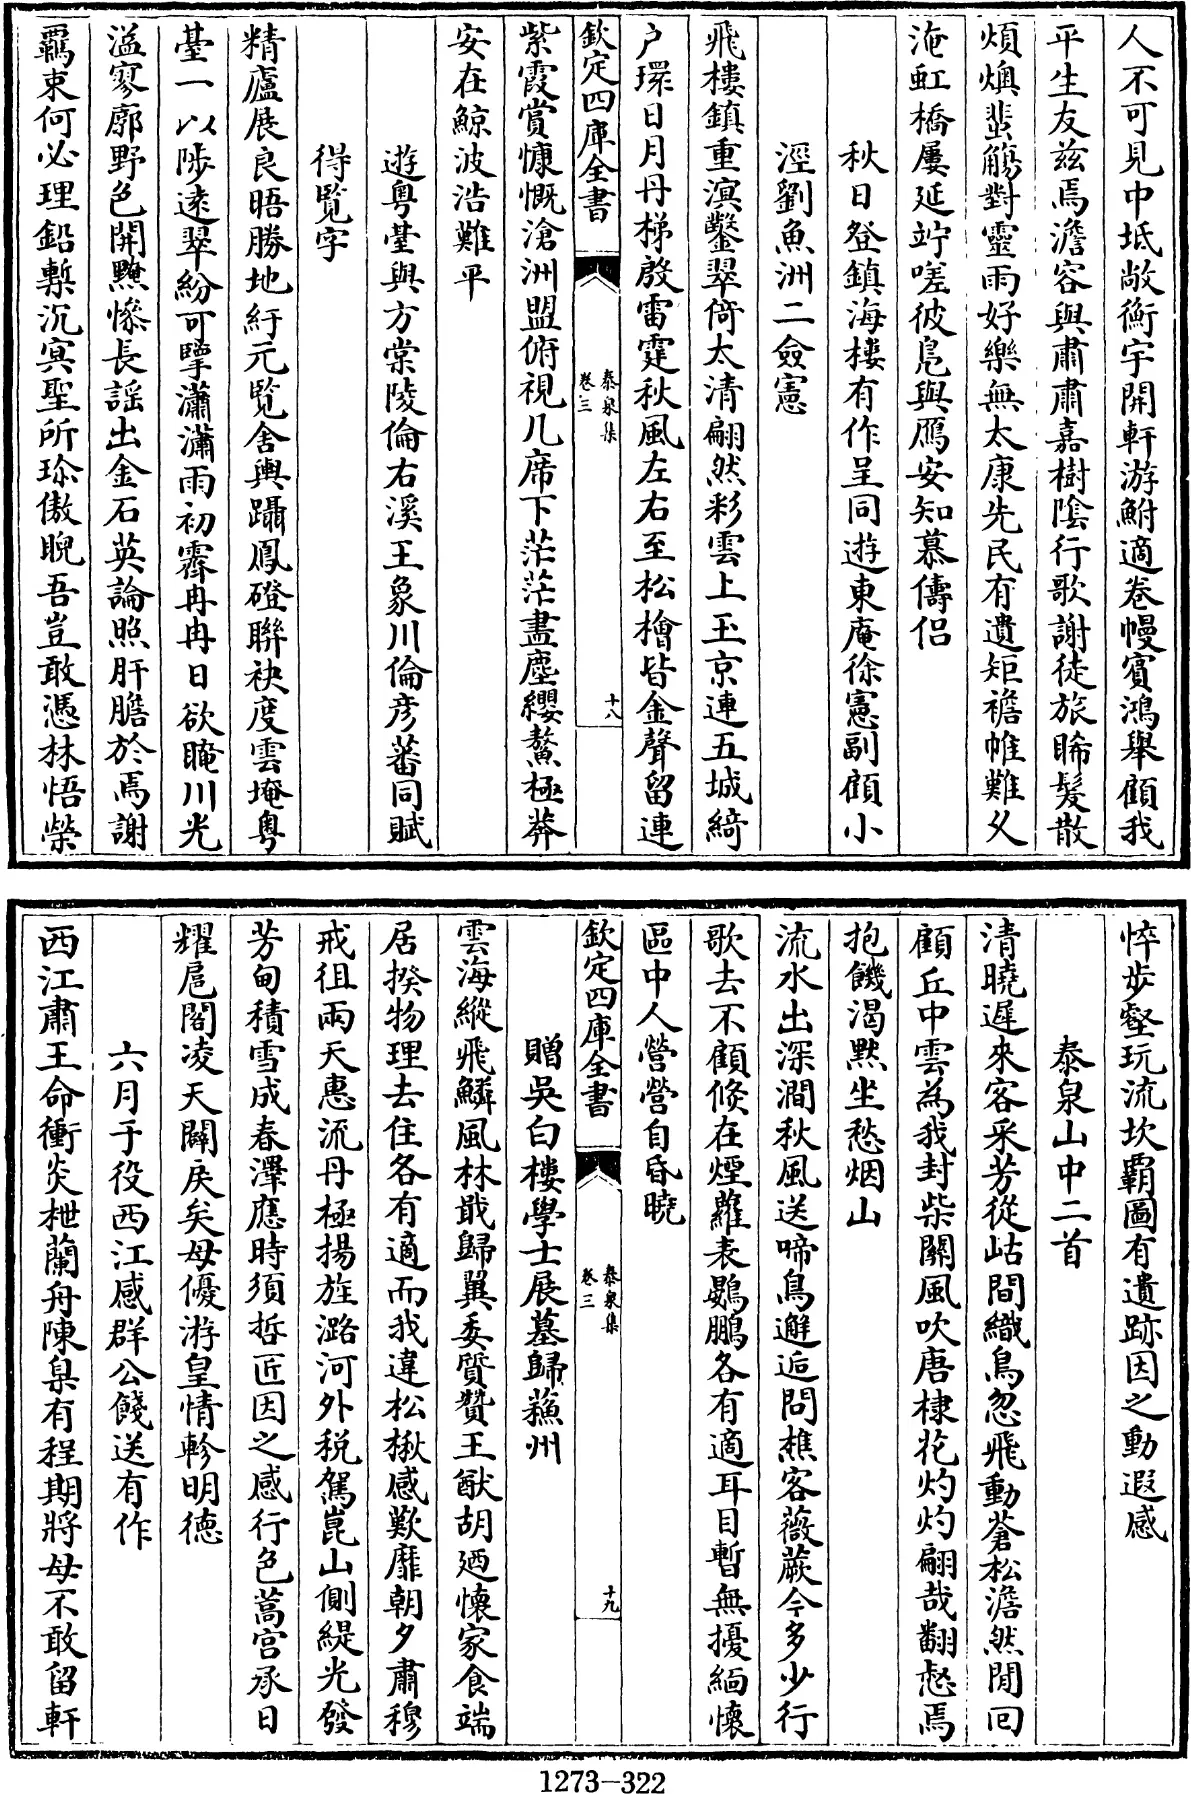 人不可見中坻敞衡宇開軒游鮒適卷幔賓鴻舉顧我
平生友兹焉澹容與肅肅嘉樹陰行歌謝徒旅晞髮散
煩燠蜚觴對靈雨好樂無太康先民有遺矩襜帷難久
淹虹橋屢延竚嗟彼鳬與鴈安知慕儔侣
秋日登鎮海樓有作呈同遊東庵徐憲副顧小
涇劉魚洲二僉憲
飛樓鎮重溟鑿翠倚太清翩然彩雲上玉京連五城綺
户環日月丹梯殷雷霆秋風左右至松檜皆金聲留連
欽定四庫全書
泰泉集
卷三
十八
紫霞賞慷慨滄洲盟俯視几席下茫茫盡塵纓鰲極莽
安在鯨波浩難平
遊粤臺與方棠陵倫右溪王象川倫彦蕃同賦
得覧字
精廬展良晤勝地紆元覧舍輿躡鳳磴聯袂度雲埯粤
臺一以陟遠翠紛可擥瀟瀟雨初霽冉冉日欲晻川光
溢寥廓野色開黤慘長謡出金石英論照肝膽於焉謝
羈束何必理鉛槧沉冥聖所珍傲睨吾豈敢憑林悟榮
悴步壑玩流坎霸圖有遺跡因之動遐感
泰泉山中二首
清曉遲來客采芳從岵間織鳥忽飛動蒼松澹然閒回
顧丘中雲為我封柴關風吹唐棣花灼灼翩哉翻惄焉
抱饑渴黙坐愁烟山
流水出深澗秋風送啼鳥邂逅問樵客薇蕨今多少行
歌去不顧倐在煙蘿表鷃鵬各有適耳目暫無擾緬懷
區中人營營自昏曉
欽定四庫全書
泰泉集
卷三
十九
贈吳白樓學士展墓歸蘓州
雲海縱飛鱗風林戢歸翼委質贊王猷胡廼懷家食端
居揆物理去住各有適而我違松楸感歎靡朝夕肅穆
戒徂兩天惠流丹極揚旌潞河外税駕崑山側緹光發
芳甸積雪成春澤應時須哲匠因之感行色蒿宫承日
耀扈閣凌天闢戾矣毋優游皇情軫明德
六月于役西江感群公餞送有作
西江肅王命衝炎枻蘭舟陳臬有程期將母不敢留軒
1273-322